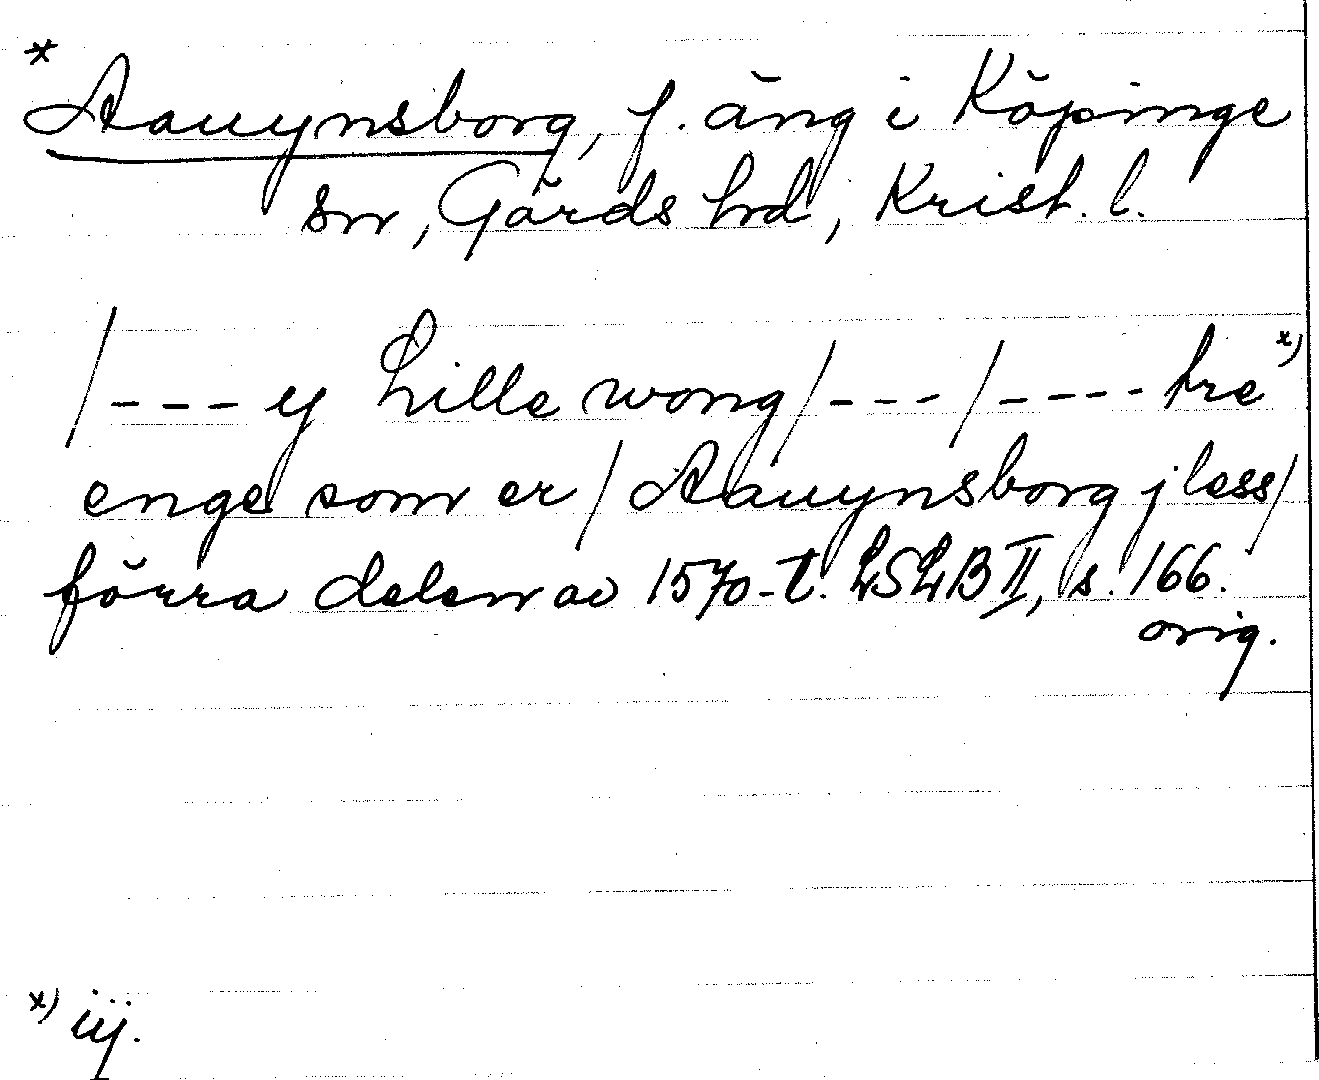 * Aauynsborg, f. äng i Köpinge
sn, Gärds hd, Krist. l.
/ - - - y Lille wong / - - - / - - - - tre x)
enge som er / Aauynsborg j less /
förra delen av 1570-t. LSLB II, s. 166.
orig.
x) iij.